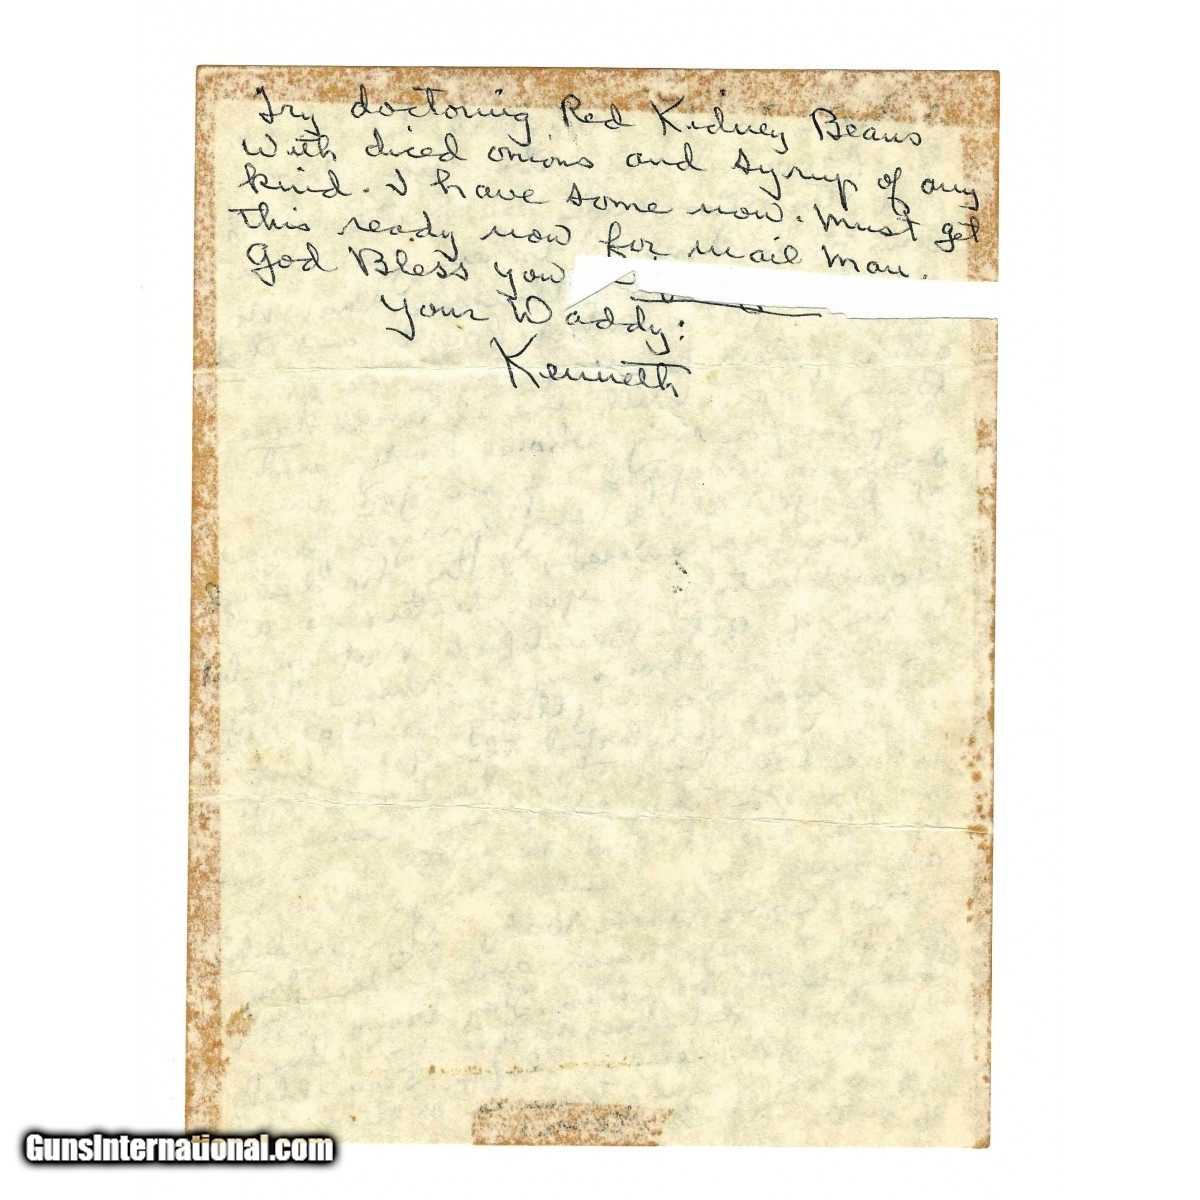 Try doctoring Red Kidney Beans
with diced onions and syrup of any
kind. I have some now. Must get
this ready now for mail man.
God Bless you
Your Waddy:
Kenneth
GunsInternational.com